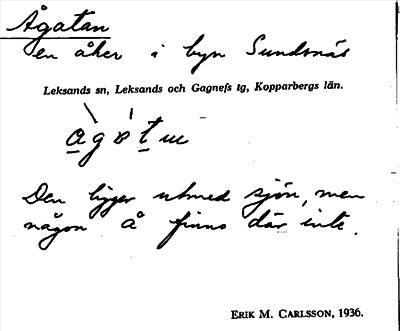 Ågatan
en åker i byn Sundsnäs
Leksands sn, Leksands och Gagnefs tg, Kopparbergs län.
Den ligger utmed sjön, men
någon å finns där inte.
ERIK M. CARLSSON, 1936.